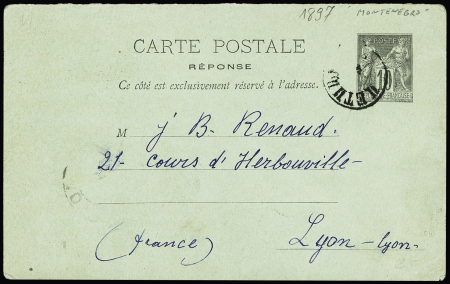 1897 "MONTENEGRO"
CARTE POSTALE
RÉPONSE
Ce côté est exclusivement réservé à l'adresse.
POSTE
10
M J B- Renaud.
21- cours d'Herbouville-
(france) Lyon-lyon-